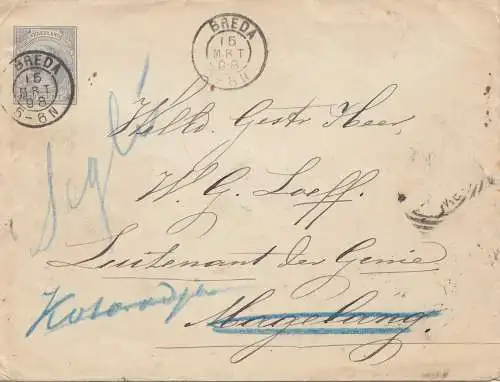 NEDERLAND
BREDA
15
MRT
98
5-6N
BREDA
15
MRT
98
5-6N
Segli
Welld. Gestr. Heer,
W. G. Loeff.
Luitenant der Genie
Kotaradja
Magelang.